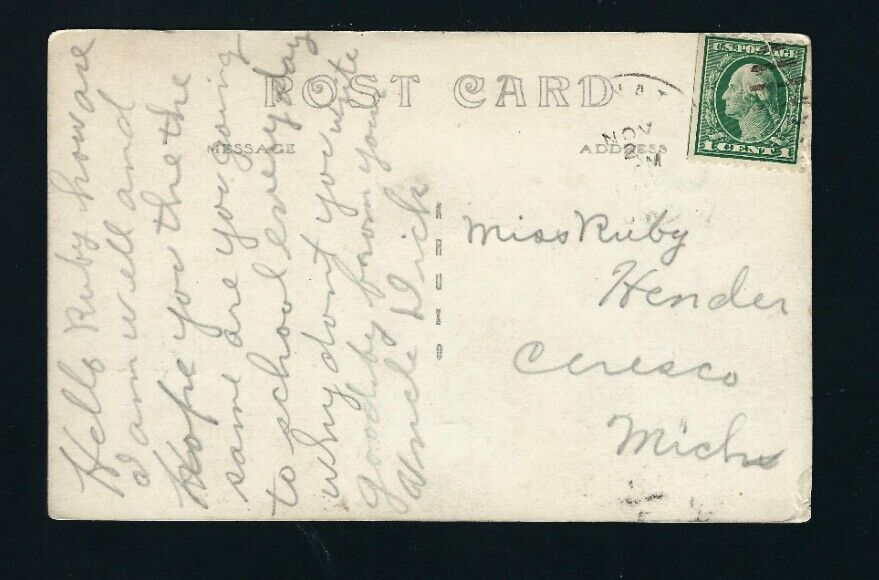 POST CARD
MESSAGE
ADDRESS
U.S. POSTAGE
1 CENT 1
NOV
2
PM
Hello Ruby how are
I am well and
Hope you the the
same are you going
to school every day
why dont you write
goodby from your
Uncle Dick
Miss Ruby
Hender
Ceresco
Mich